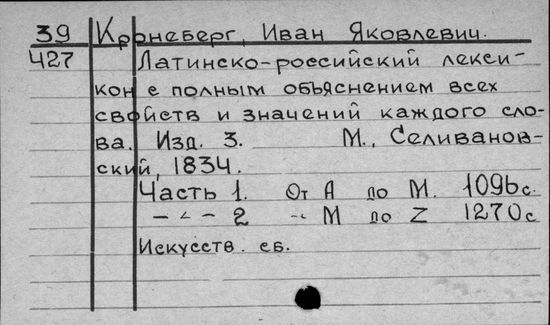 39 Кронеберг, Иван Яковлевич.
427 Латинско-российский лекси-
кон с полным объяснением всех
свойств и значений каждого сло-
ва. Изд. 3. М., Селиванов-
ский, 1834.
Часть 1. От А до М. 1096с.
— " — 2 -"- М до Z 1270с
Искусств. сб.